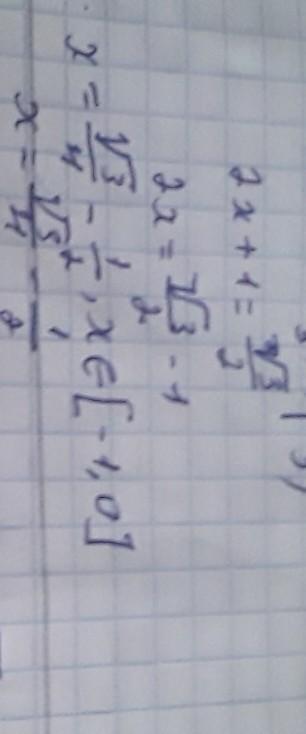 2x + 1 = √3/2
2x = √3/2 - 1
x = √3/4 - 1/2, x ∈ [-1, 0]
x = √3/4 - 1/2